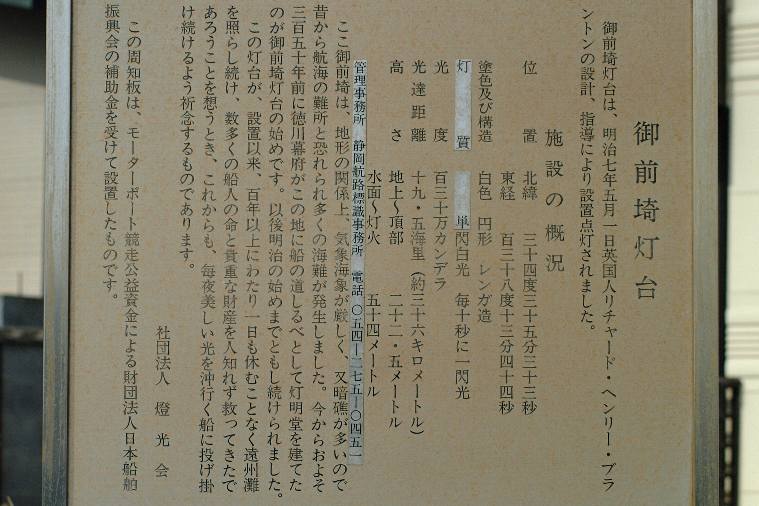 御前埼灯台
御前埼灯台は、明治七年五月一日英国人リチャード・ヘンリー・ブラ
ントンの設計、指導により設置点灯されました。
施設の概況
位置 北緯 三十四度三十五分三十三秒
東経 百三十八度十三分四十四秒
塗色及び構造 白色 円形 レンガ造
灯質 単閃白光 毎十秒に一閃光
光度 百三十万カンデラ
光達距離 十九・五海里(約三十六キロメートル)
高さ 地上〜頂部 二十二・五メートル
水面〜灯火 五十四メートル
管理事務所 静岡航路標識事務所 電話 〇五四―二七五―〇四五一
ここ御前埼は、地形の関係上、気象海象が厳しく、又暗礁が多いので
昔から航海の難所と恐れられ多くの海難が発生しました。今からおよそ
三百五十年前に徳川幕府がこの地に船の道しるべとして灯明堂を建てた
のが御前埼灯台の始めです。以後明治の始めまでともし続けられました。
この灯台が、設置以来、百年以上にわたり一日も休むことなく遠州灘
を照らし続け、数多くの船人の命と貴重な財産を人知れず救ってきたで
あろうことを想うとき、これからも、毎夜美しい光を沖行く船に投げ掛
け続けるよう祈念するものであります。
社団法人 燈光会
この周知板は、モーターボート競走公益資金による財団法人日本船舶
振興会の補助金を受けて設置したものです。